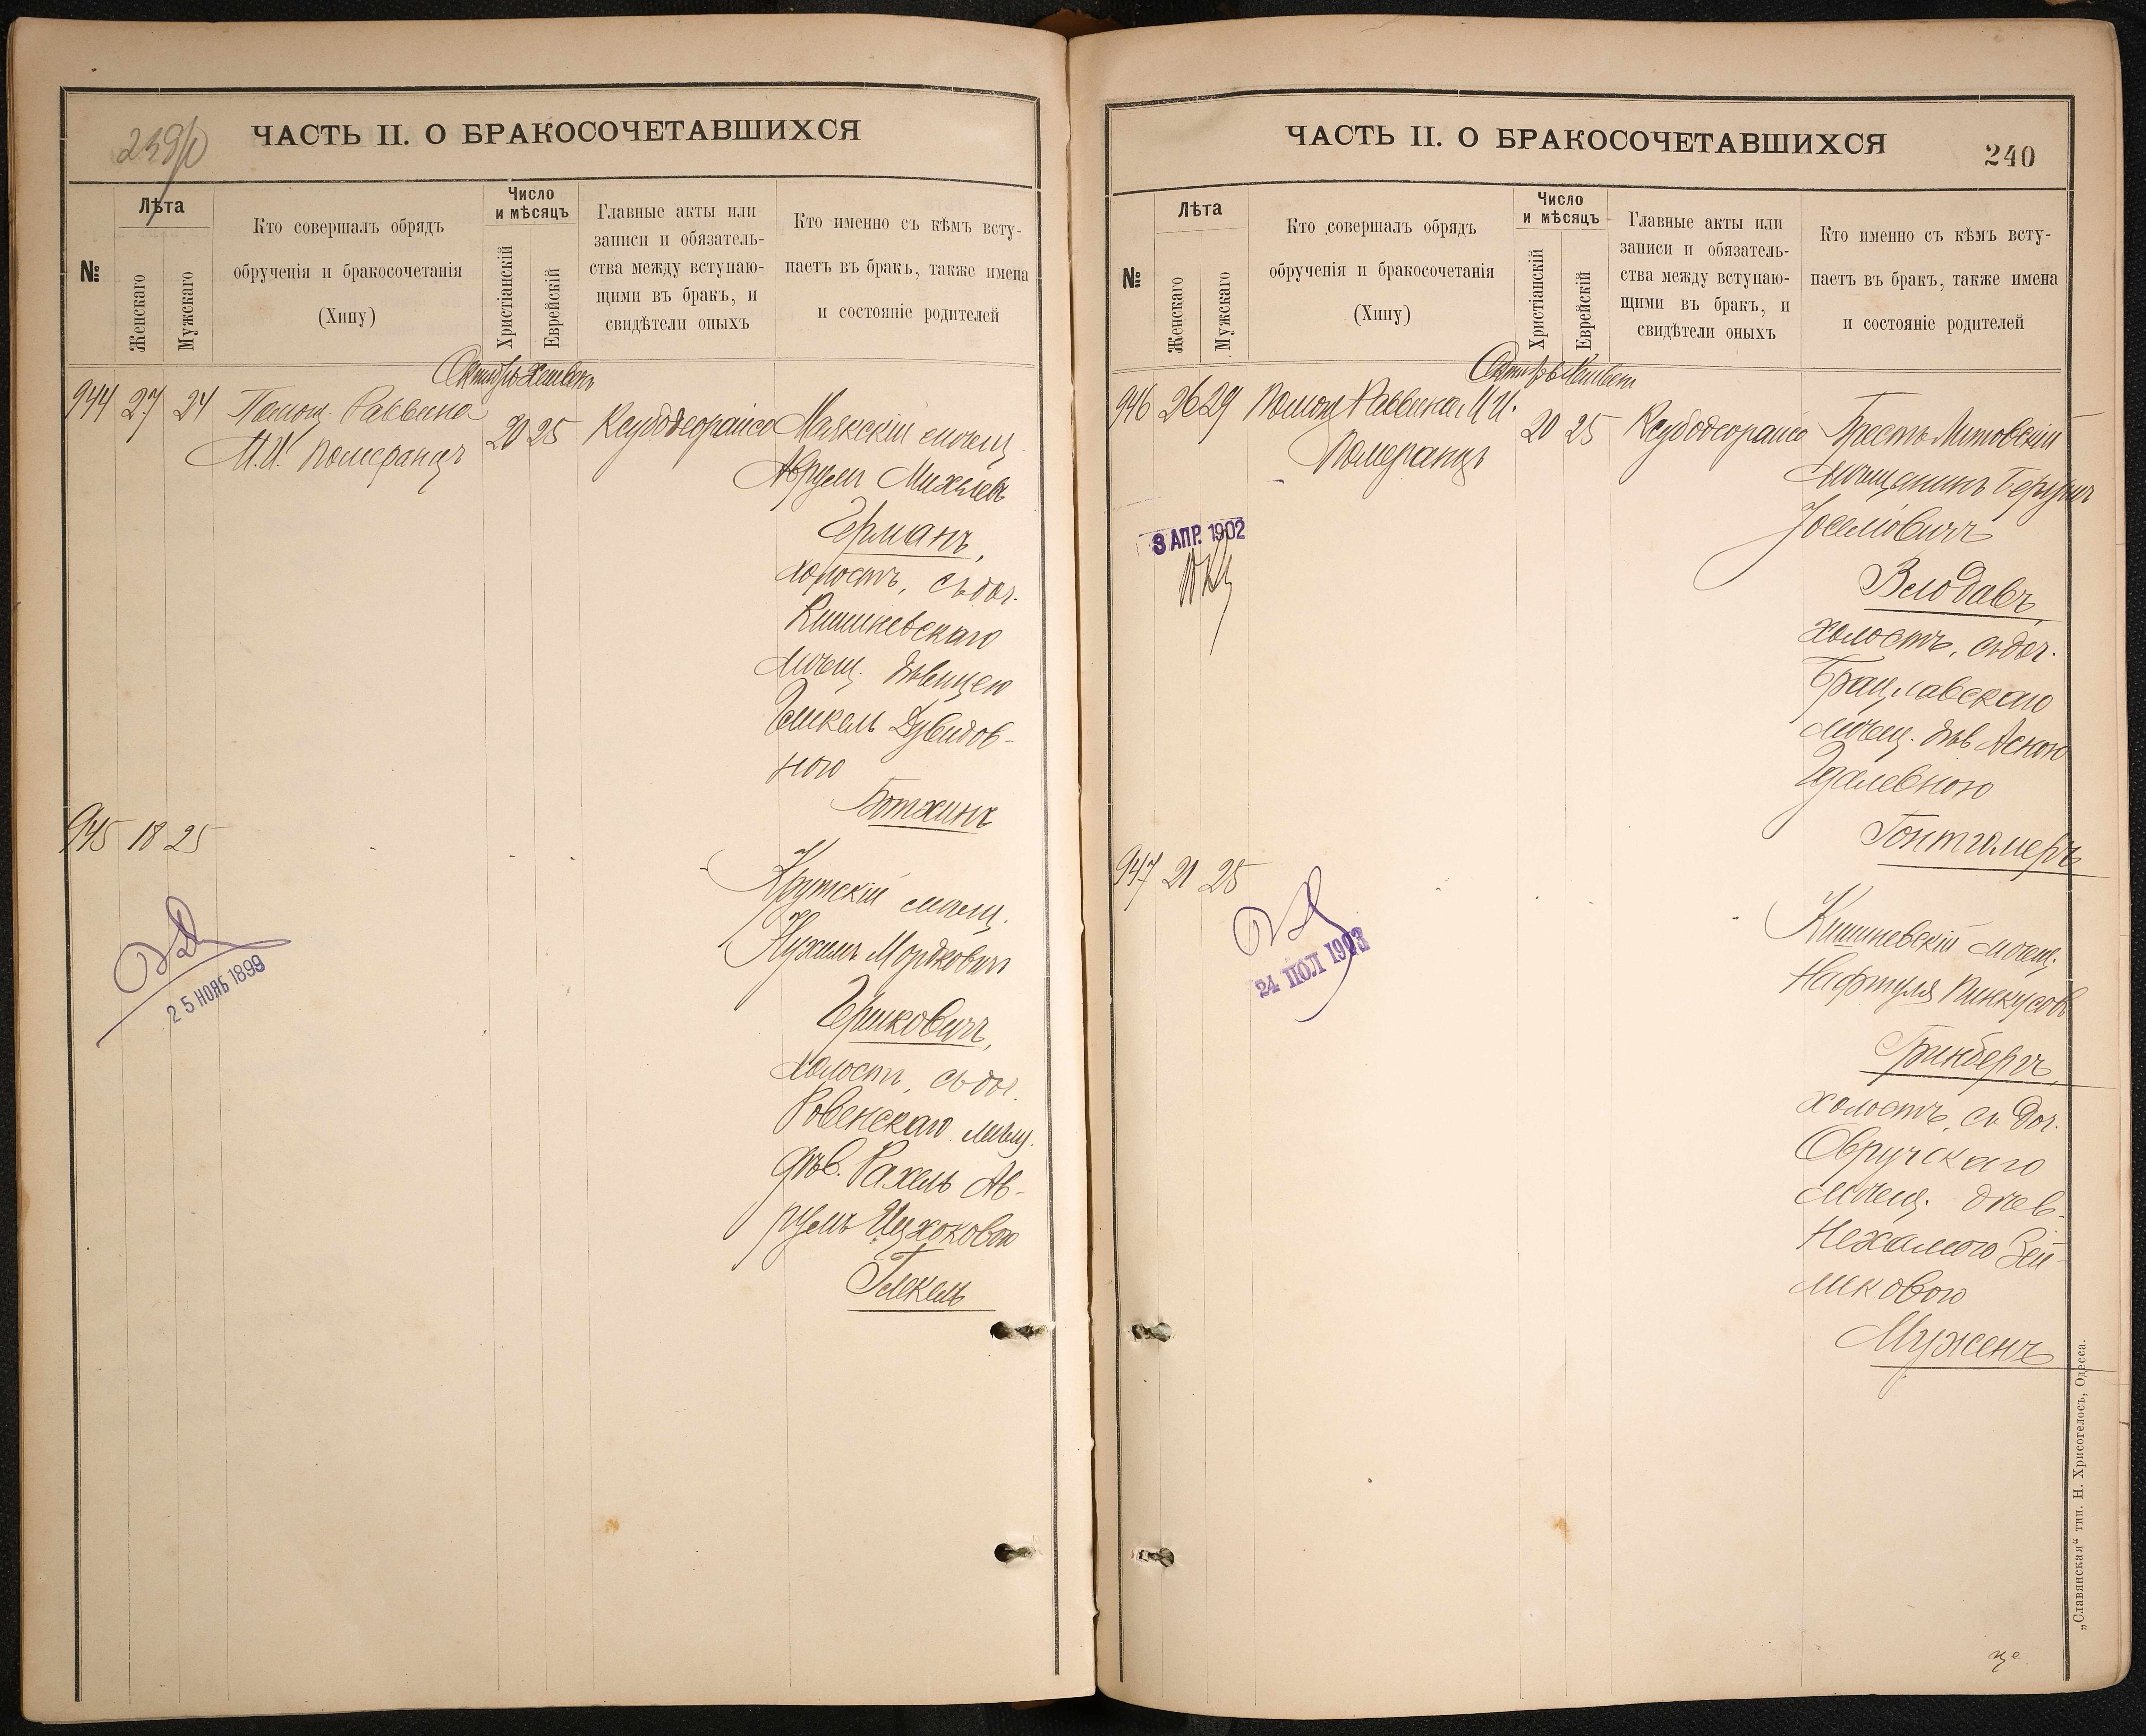 239/о
ЧАСТЬ II. О БРАКОСОЧЕТАВШИХСЯ
№
Лѣта
Женскаго
Мужскаго
Кто совершалъ обрядъ
обрученія и бракосочетанія
(Хипу)
Число
и мѣсяцъ
Христіанскій
Еврейскій
Главные акты или
записи и обязатель-
ства между вступаю-
щими въ бракъ, и
свидѣтели оныхъ
Кто именно съ кѣмъ всту-
паетъ въ бракъ, также имена
и состояніе родителей
Октябрь Хешвонъ
944 27 24 Помощ. Раввина 20 25 Ксубодеорайсо Маякскій мѣщ.
М.И. Померанцъ
Аврумъ Михелевъ
Германъ,
холостъ, съ доч.
Кишиневскаго
мѣщ. дѣвицею
Дувидов-
ною
Ботхинъ
945 18 25
Крутскій мѣщ.
Нухимъ Мордковичъ
Гершковичъ,
холостъ, съ доч.
Ровенскаго мѣщ.
дѣв. Рахель Ав-
румъ Ицхоковою
Глекель
25 НОЯБ 1899
ЧАСТЬ II. О БРАКОСОЧЕТАВШИХСЯ
240
№
Лѣта
Женскаго
Мужскаго
Кто совершалъ обрядъ
обрученія и бракосочетанія
(Хипу)
Число
и мѣсяцъ
Христіанскій
Еврейскій
Главные акты или
записи и обязатель-
ства между вступаю-
щими въ бракъ, и
свидѣтели оныхъ
Кто именно съ кѣмъ всту-
паетъ въ бракъ, также имена
и состояніе родителей
Октябрь Хешвон
946 26 29 Помощ Раввина М.И. 20 25 Ксубодеорайсо Брестъ-Литовскій
Померанцъ
мѣщанинъ
Іоселіовичъ
Влодавъ,
холостъ, съ доч.
Брацлавскаго
мѣщ. дѣв Асною
Гдалевною
Гонтгомеръ
3 АПР. 1902
947 21 25
Кишиневскій мѣщ.
Нафтуля Пинкусовъ
Гринбергъ,
холостъ, съ доч.
Овручскаго
мѣщ. дѣв.
Нехамою Зей-
Муженъ
24 ІЮЛ 1903
„Славянская“ тип. Н. Хрисогелосъ, Одесса.